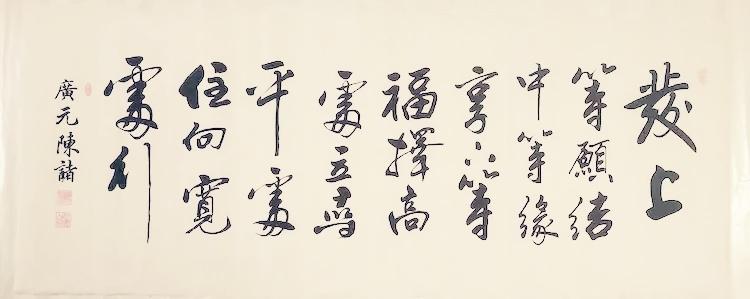 發上
等願結
中等緣
享下等
福擇高
處立尋
平處
住向寬
處行
廣元陳